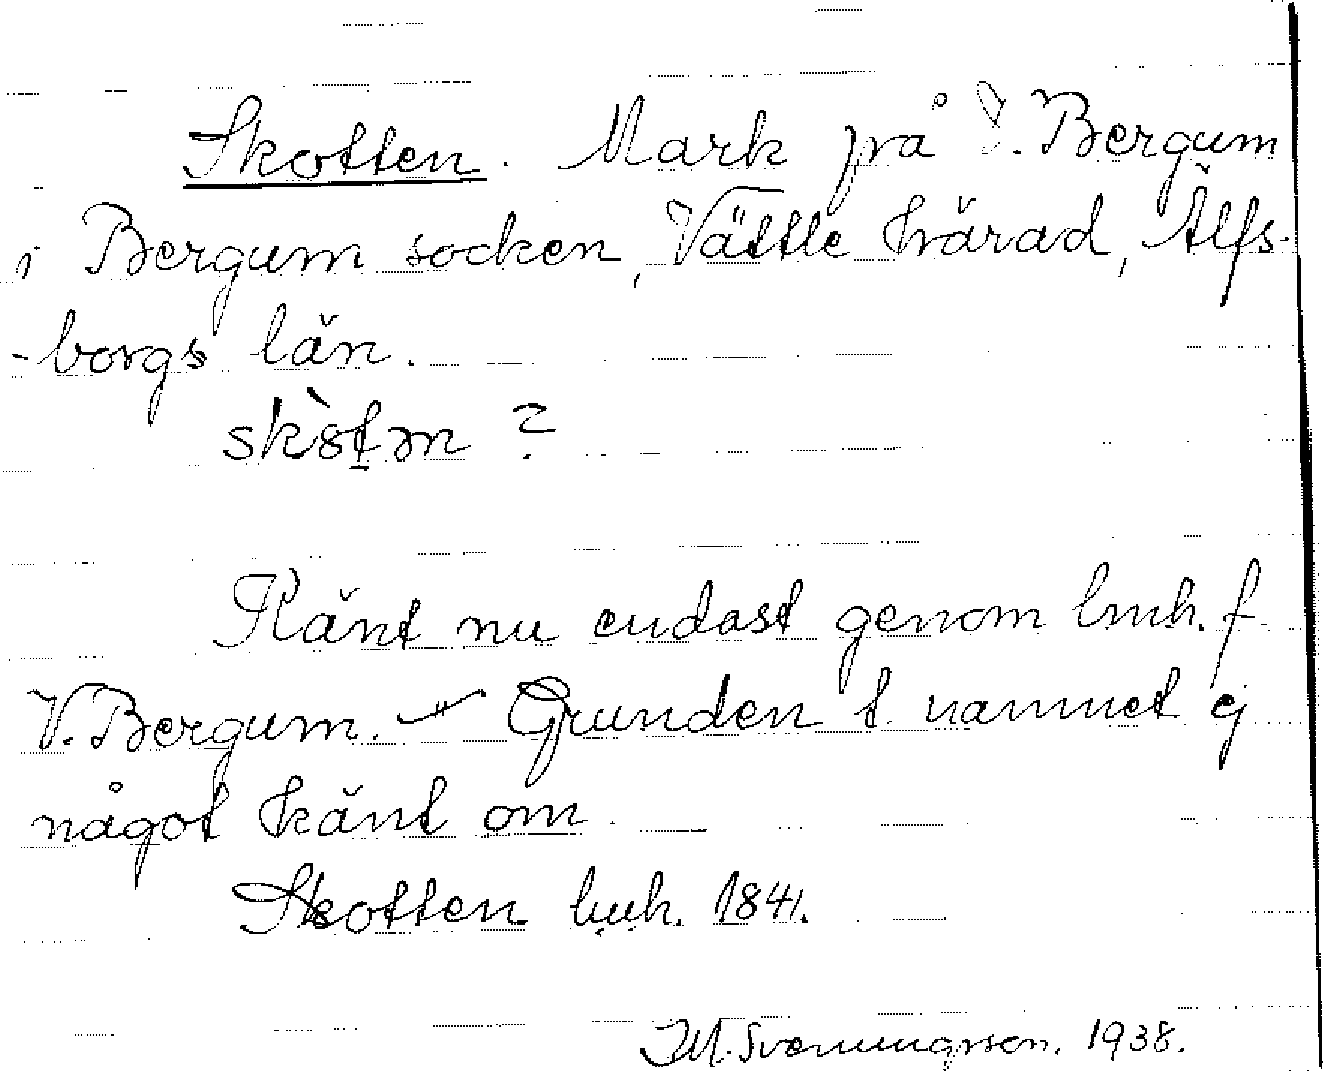 Skotten. Mark på V. Bergum
i Bergum socken, Vättle härad, Älfs-
-borgs län.
skòtən ?
Känt nu endast genom lmh. f
V. Bergum. – Grunden t namnet ej
något känt om
Skotten lmh. 1841.
1938.